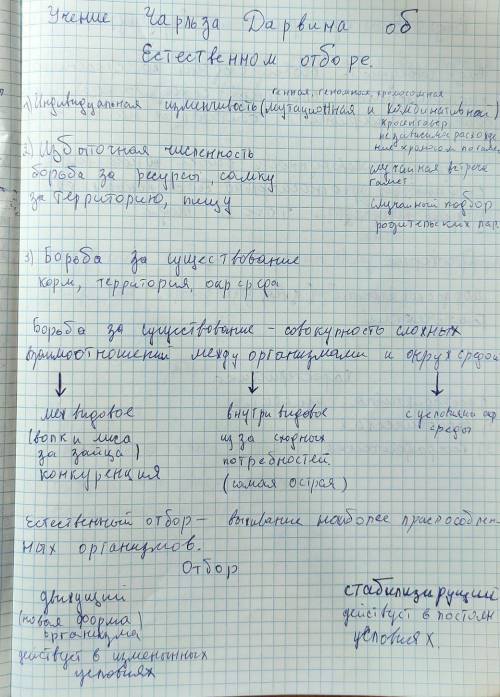 Учение Чарльза Дарвина об
Естественном отборе.
генная, геномная, хромосомная
1) Индивидуальная изменчивость (мутационная и комбинативная)
кроссинговер
независимое расхожде
ние хромосом
случайная встреча
гамет
случайный подбор
родительских пар
2) Избыточная численность
борьба за ресурсы, самку
за территорию, пищу
3) Борьба за существование
корм, территория, окр среда
Борьба за существование - совокупность сложных
взаимоотношений между организмами и окруж средой
межвидовое
(волк и лиса
за зайца)
конкуренция
внутривидовое
из за сходных
потребностей.
(самая острая)
с условиями окр
среды
Естественный отбор - выживание наиболее приспособлен-
ных организмов.
Отбор
движущий
(новая форма)
организма
действует в изменынных
условиях
стабилизирущий
действует в постоян
условиях.